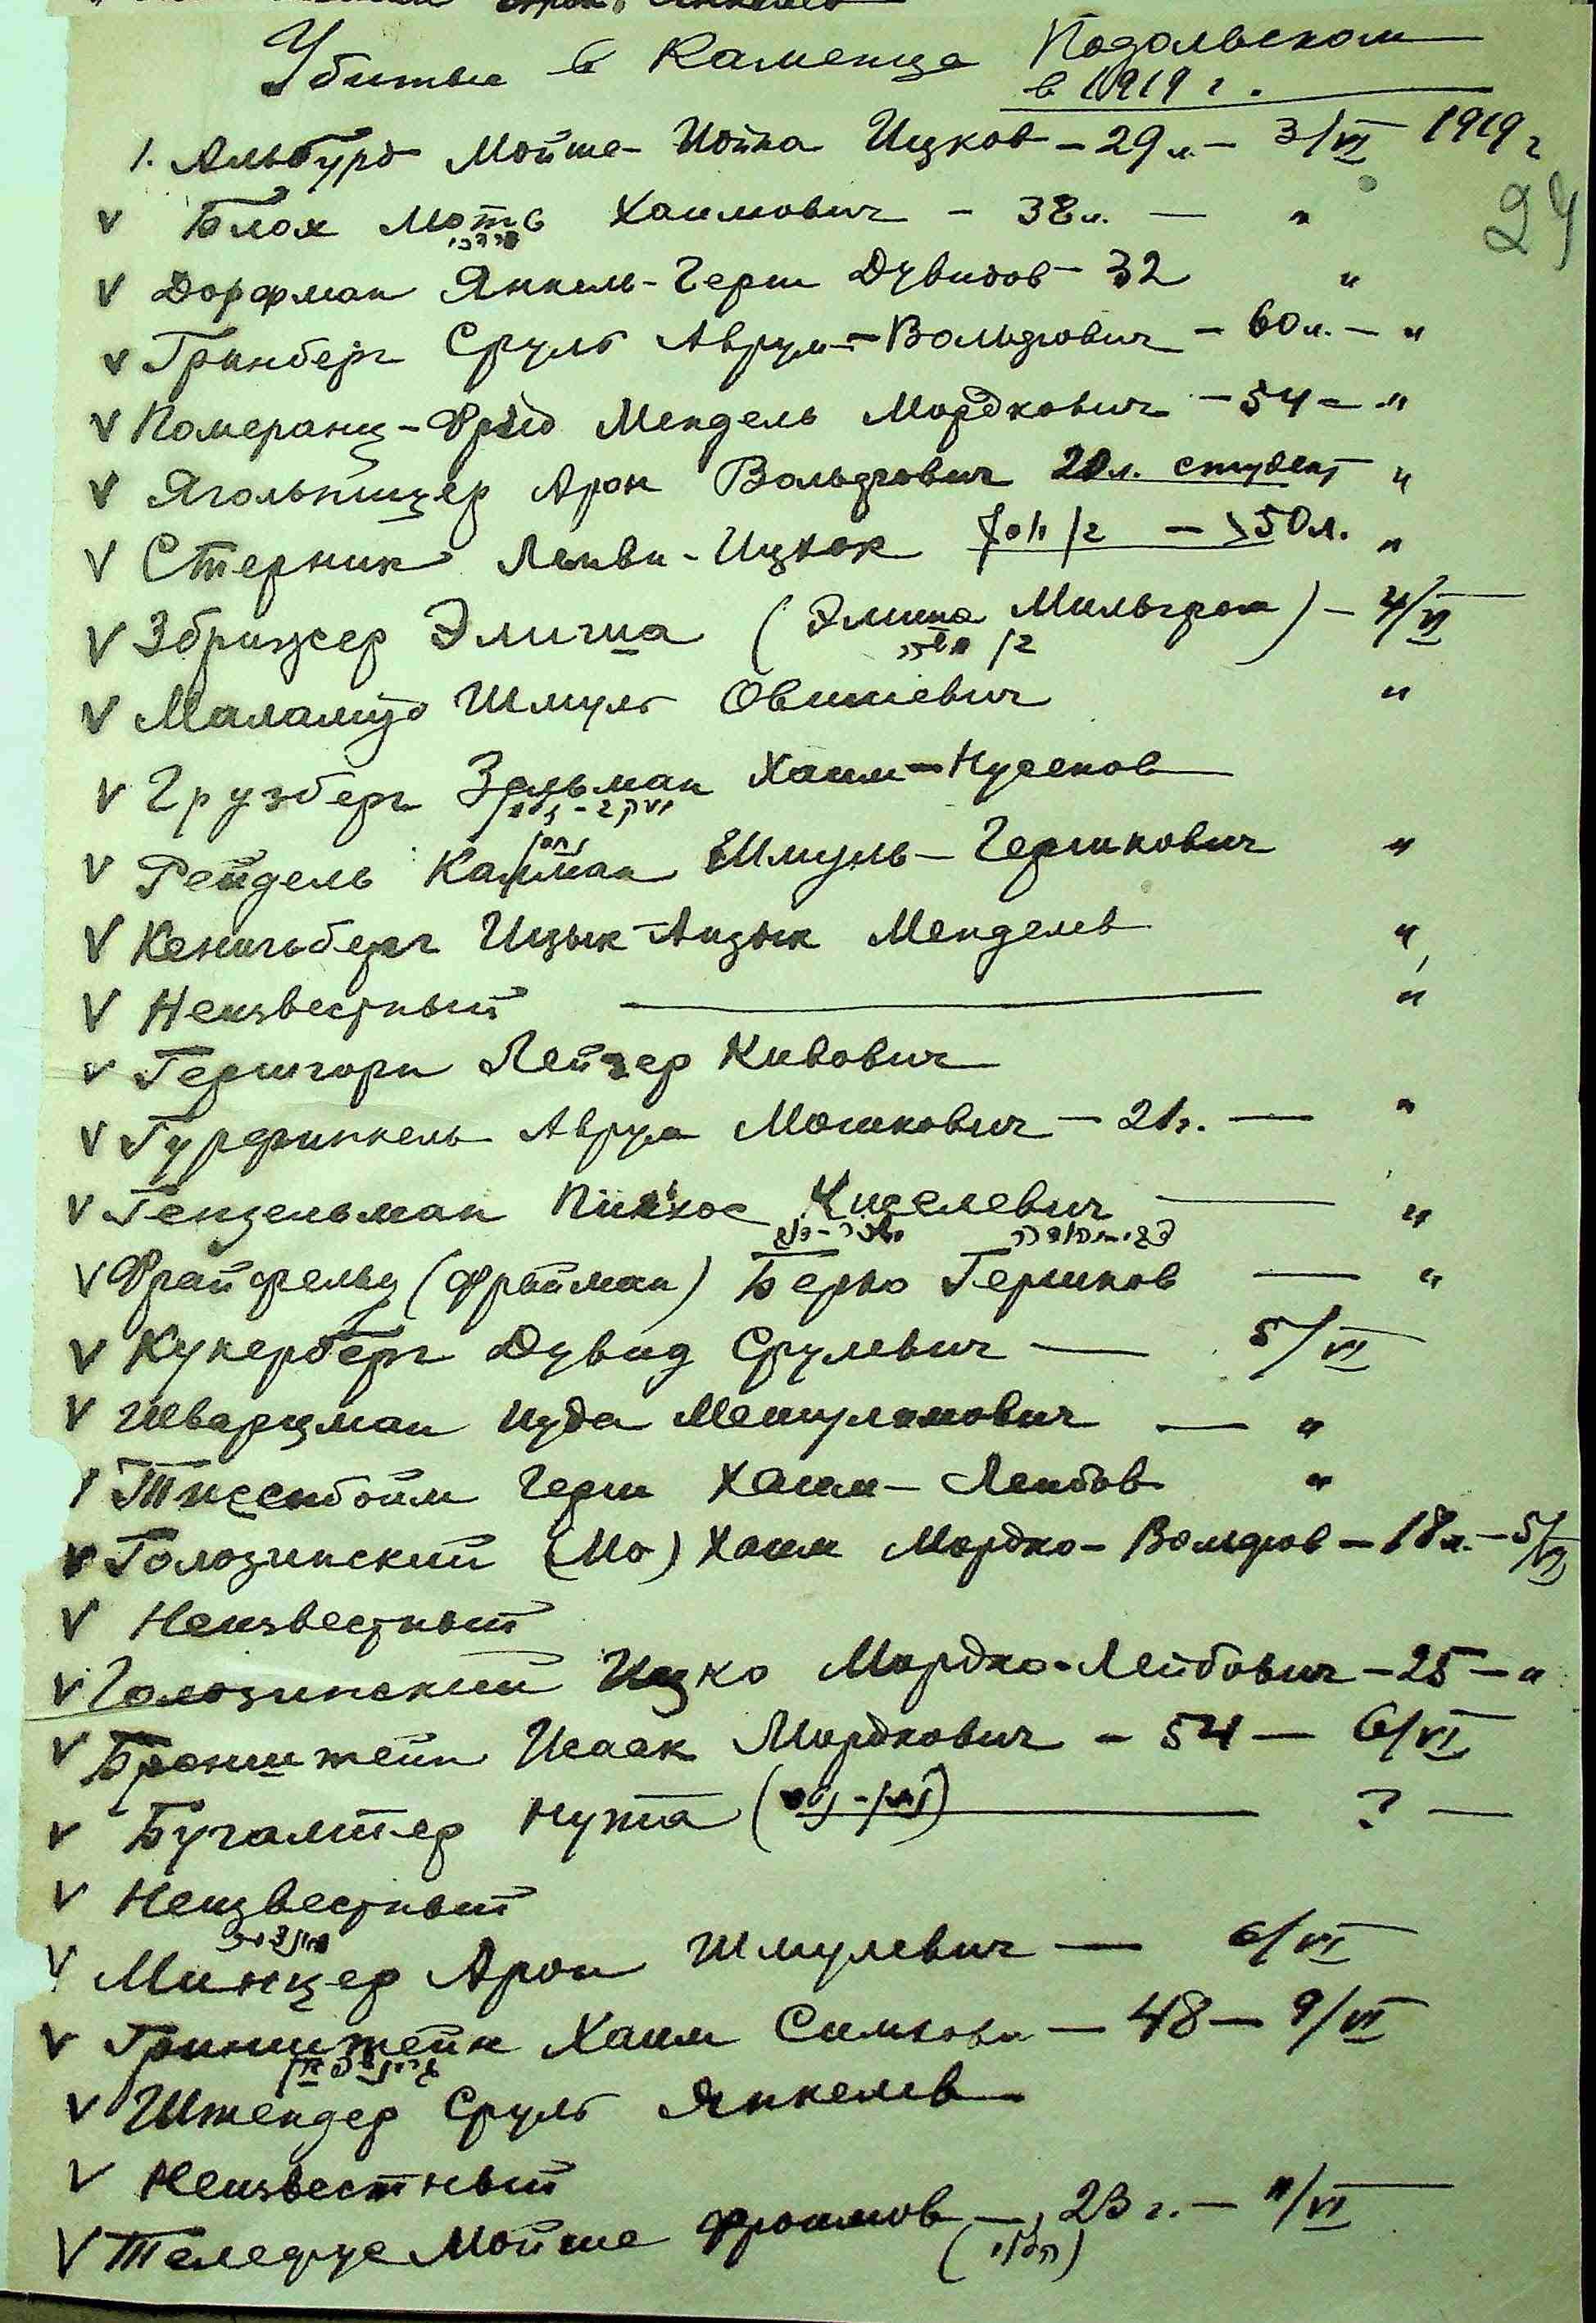 Убитые в Каменце Подольском
в 1919 г.
1. Альбурд Мойше-Иойна Ицков - 29 л. - 3/VI 1919 г
24
V Блох Мотя Хаимович - 38 л. — "
מרדכי
V Дорфман Янкель-Герш Дувидов - 32 "
V Гринберг Сруль Аврум-Вольфович - 60 л. - "
V Померанц-Фрид Мендель Мордкович - 54 - "
V Ягольницер Арон Вольфович 20 л. студент "
V Стерник Лейви-Ицхок - 50 л. "
V Збрижер Элиша (Элиша Мильгром) - 4/VI
V Маламуд Шмуль Овшиевич "
V Грузберг Зальман Хаим-Нусенов
V Рейдель Калман Шмуль-Гершкович "
V Кенигберг Ицык-Айзык Менделев "
V Неизвестный — "
V Гершгорн Лейзер Кивович
V Гурфинкель Аврум Мошкович - 21 г. — "
V Гензельман Пинхос Киселевич — "
V Фрайфельд (Фрайман) Берко Гершков — "
V Купербергг Дувид Срулевич — 5/VI
V Шварцман Иуда Мешулимович — "
V Тиссенбойм Герш Хаим-Лейбов "
V Голозинский (Мо) Хаим Мордко-Вольфов - 18 л. - 5/VI
V Неизвестный
V Голозинский Ицко Мордко-Лейбович - 25 - "
V Бронштейн Исаак Мордкович - 54 — 6/VI
V Бугалтер Нута — ? —
V Неизвестный
מינצער
V Минцер Арон Шмулевич — 6/VI
V Гринштейн Хаим Симхови - 48 - 9/VI
גרינשטיין
V Штендер Сруль Янкелев
V Неизвестный
V Телефус Мойше Фроимов — 23 г. - 11/VI